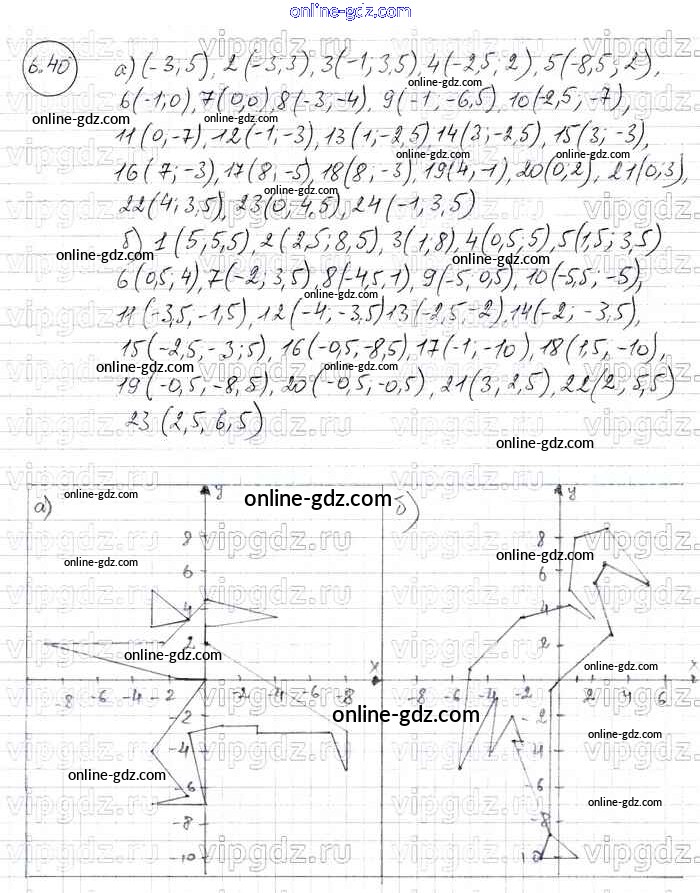 online-gdz.com
6.40
а) (-3;5), 2(-3;3), 3(-1;3,5), 4(-2,5; 2), 5(-8,5; 2),
6(-1;0), 7(0,0), 8(-3;-4), 9(-1;-6,5), 10(-2,5; -7),
11(0;-7), 12(-1;-3), 13(1;-2,5) 14(3;-2,5), 15(3;-3),
16(7;-3), 17(8;-5), 18(8;-3), 19(4,-1), 20(0,2), 21(0,3),
22(4;3,5), 23(0;4,5), 24(-1,3,5)
б) 1(5;5,5), 2(2,5;8,5), 3(1;8), 4(0,5;5), 5(1,5; 3,5)
6(0,5;4), 7(-2; 3,5), 8(-4,5,1), 9(-5,0,5), 10(-5,5;-5),
11(-3,5,-1,5), 12(-4;-3,5) 13(-2,5,-2), 14(-2; -3,5),
15(-2,5,-3;5), 16(-0,5,-8,5), 17(-1;-10), 18(1,5,-10),
19(-0,5,-8,5), 20(-0,5,-0,5), 21(3, 2,5), 22(2, 5,5)
23(2,5, 6,5)
online-gdz.com
а) y б) y
8 8
6 6
4 4
2 2
x x
-8 -6 -4 -2 -2 -4 -6 -8 -8 -6 -4 -2 2 4 6
-2 -2
-4 -4
-6 -6
-8 -8
-10 10
vipgdz.ru